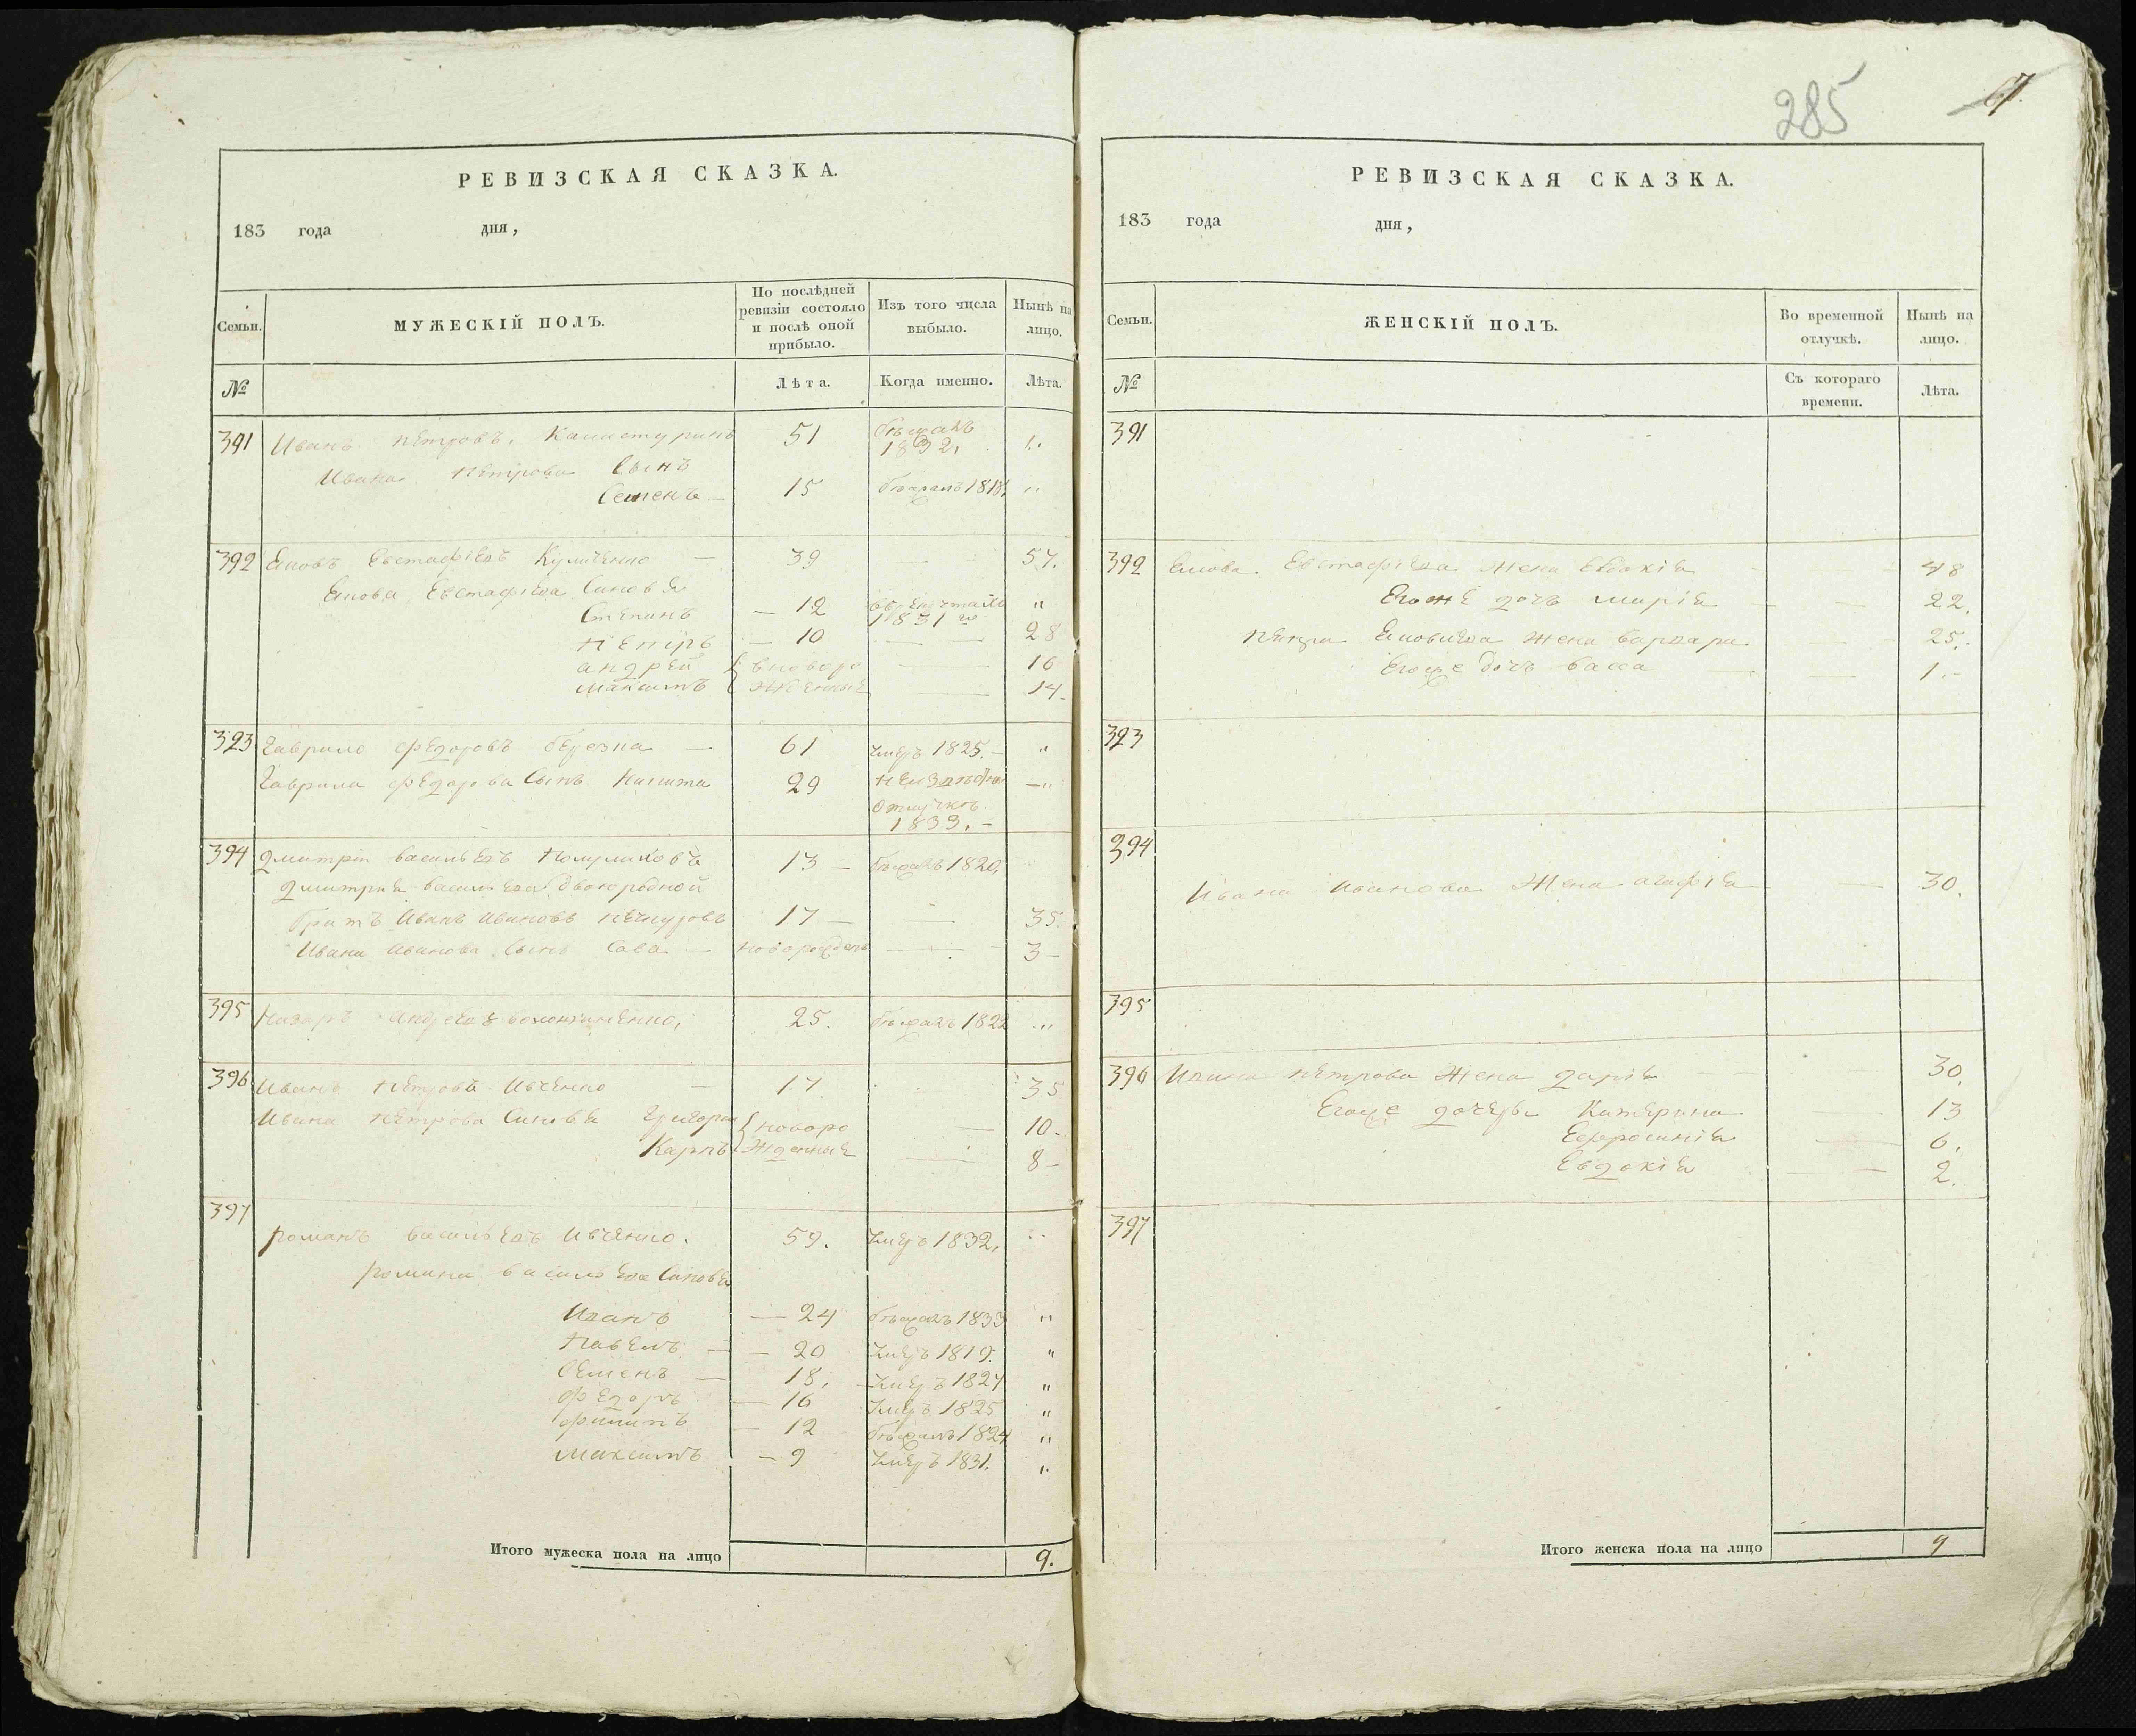 РЕВИЗСКАЯ СКАЗКА.
183 года дня,
Семьи.
МУЖЕСКІЙ ПОЛЪ.
По послѣдней ревизіи состояло и послѣ оной прибыло.
Изъ того числа выбыло.
Нынѣ на лицо.
№
Лѣта.
Когда именно.
Лѣта.
391 Иванъ Петровъ 51 бѣжалъ 1832. "
Ивана Петрова Сынъ
Семенъ 15 бѣжалъ 1818. "
392 Евстафіевъ 39 — 57.
Евстафіева Синовья
Степанъ — 12 1831 "
Петръ — 10 — 28
андрей вноворо — 16
Максимъ жденные — 14.
393 Гаврило Федоровъ березка — 61 Умеръ 1825. — "
Гаврила Федорова Сынъ Никита 29 отлучкѣ 1833. — "
394 Дмитрій васильевъ 13 — бѣжалъ 1820.
Дмитрія васильева Двоюродной
братъ Иванъ Ивановъ 17 — — 35.
Ивана Иванова Сынъ Сава — новорожденъ — 3 —
395 Назаръ Андреевъ 25. бѣжалъ 1822 "
396 Иванъ Петровъ Ивченко — 17 35
Ивана Петрова Синовья Григорій новоро — 10.
Карпъ жденные — 8 —
397
романъ васильевъ Ивченко. 59. Умеръ 1832.
романа васильева Синовья
Иванъ — 24 бѣжалъ 1833 "
Павелъ — 20 Умеръ 1819. "
Семенъ — 18, Умеръ 1827 "
Федоръ — 16 Умеръ 1825 "
филипъ — 12 бѣжалъ 1824 "
Максимъ — 9 Умеръ 1831. "
Итого мужеска пола на лицо 9.
285
67.
РЕВИЗСКАЯ СКАЗКА.
183 года дня,
Семьи.
ЖЕНСКІЙ ПОЛЪ.
Во временной отлучкѣ.
Нынѣ на лицо.
№
Съ котораго времени.
Лѣта.
391
392 Евстафіева Жена Евдокія 48
Егоже дочь марія — 22.
Петра Жена варвара 25.
Егоже дочь васса — 1. —
393
394
Ивана Иванова Жена агафія — 30.
395
396 Ивана Петрова Жена дарія — 30.
Егоже дочеры Катерина — 13
Ефросинія — 6.
Евдокія — 2.
397
Итого женска пола на лицо 9